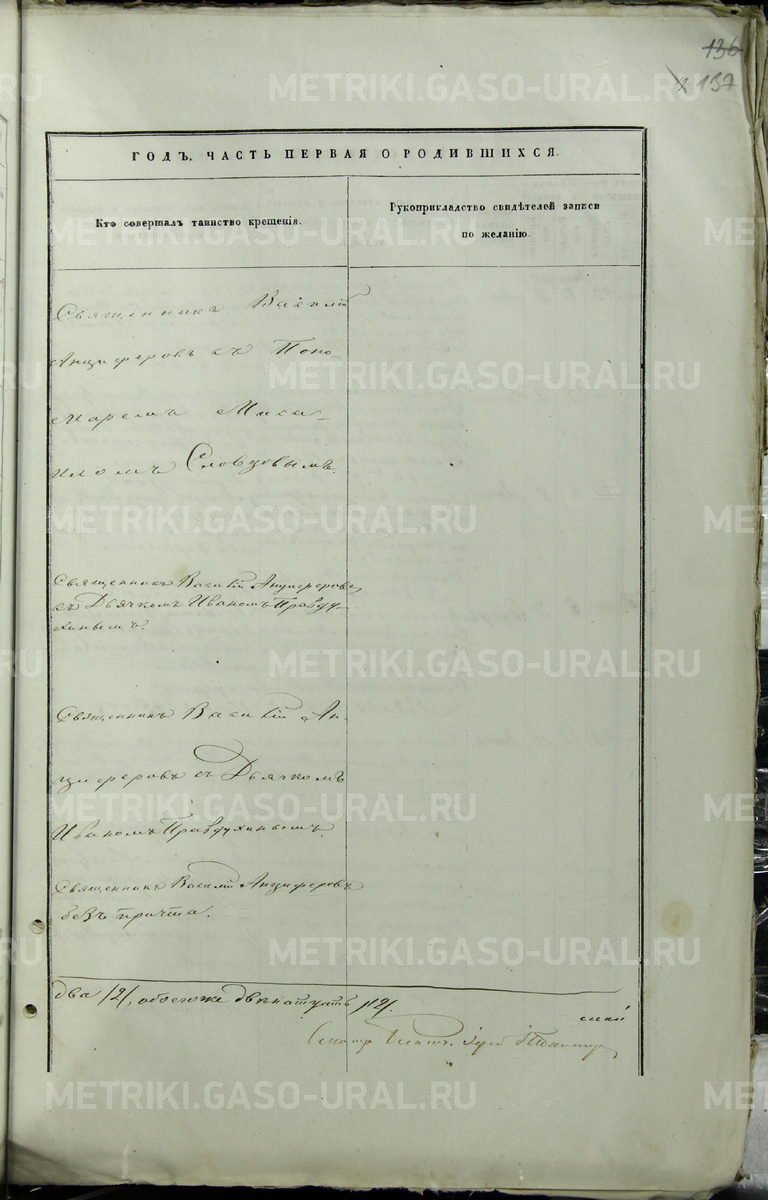 136
137
ГОДЪ, ЧАСТЬ ПЕРВАЯ О РОДИВШИХСЯ.
Кто совершалъ таинство крещенія.
Рукоприкладство свидѣтелей записи
по желанію.
Священникъ Василій
Анциферовъ съ Поно-
маремъ Миха-
иломъ Словцовымъ.
Священникъ Василій Анциферовъ
съ Дьячкомъ Иваномъ Правду-
хинымъ.
Священникъ Василій Ан-
циферовъ съ Дьячкомъ
Иваномъ Правдухинымъ.
Священникъ Василій Анциферовъ
безъ причта.
два /2/, обоегоже двѣнатцать /12/.
METRIKI.GASO-URAL.RU